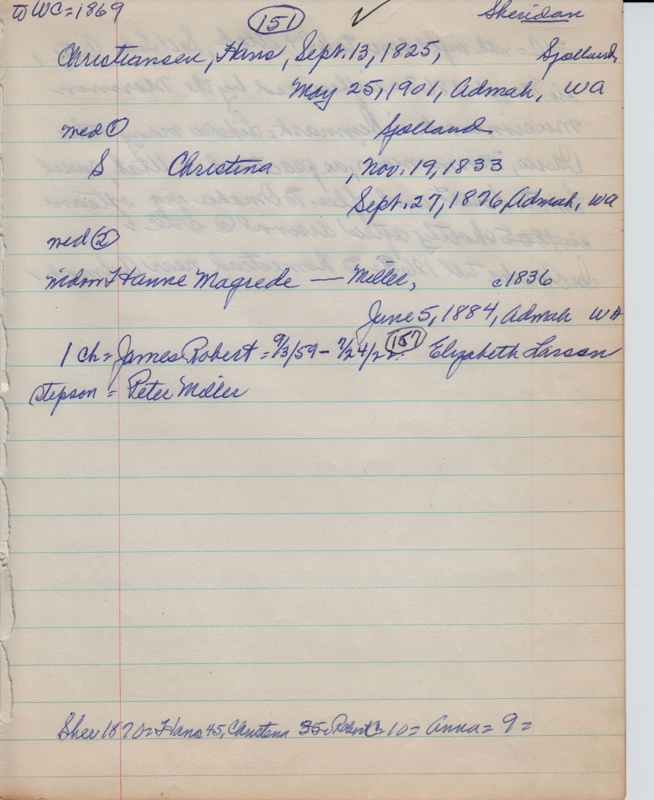 to WC=1869 (151) ✓ Sheridan
Christiansen, Hans, Sept. 13, 1825, Sjolland,
May 25, 1901, Admah, WA
med ① Sjolland
S Christina , Nov. 19, 1833
Sept. 27, 1876, Admah, WA
med ②
Hanne Magrede — Miller, c1836
June 5, 1884, Admah WA
1 Ch = James Robert = 9/3/59 - 7/24/2 (157) Elizabeth Larson
stepson = Peter Miller
Sher 1870 = Hans 45, Christina 35, Robert C = 10 = Anna = 9 =